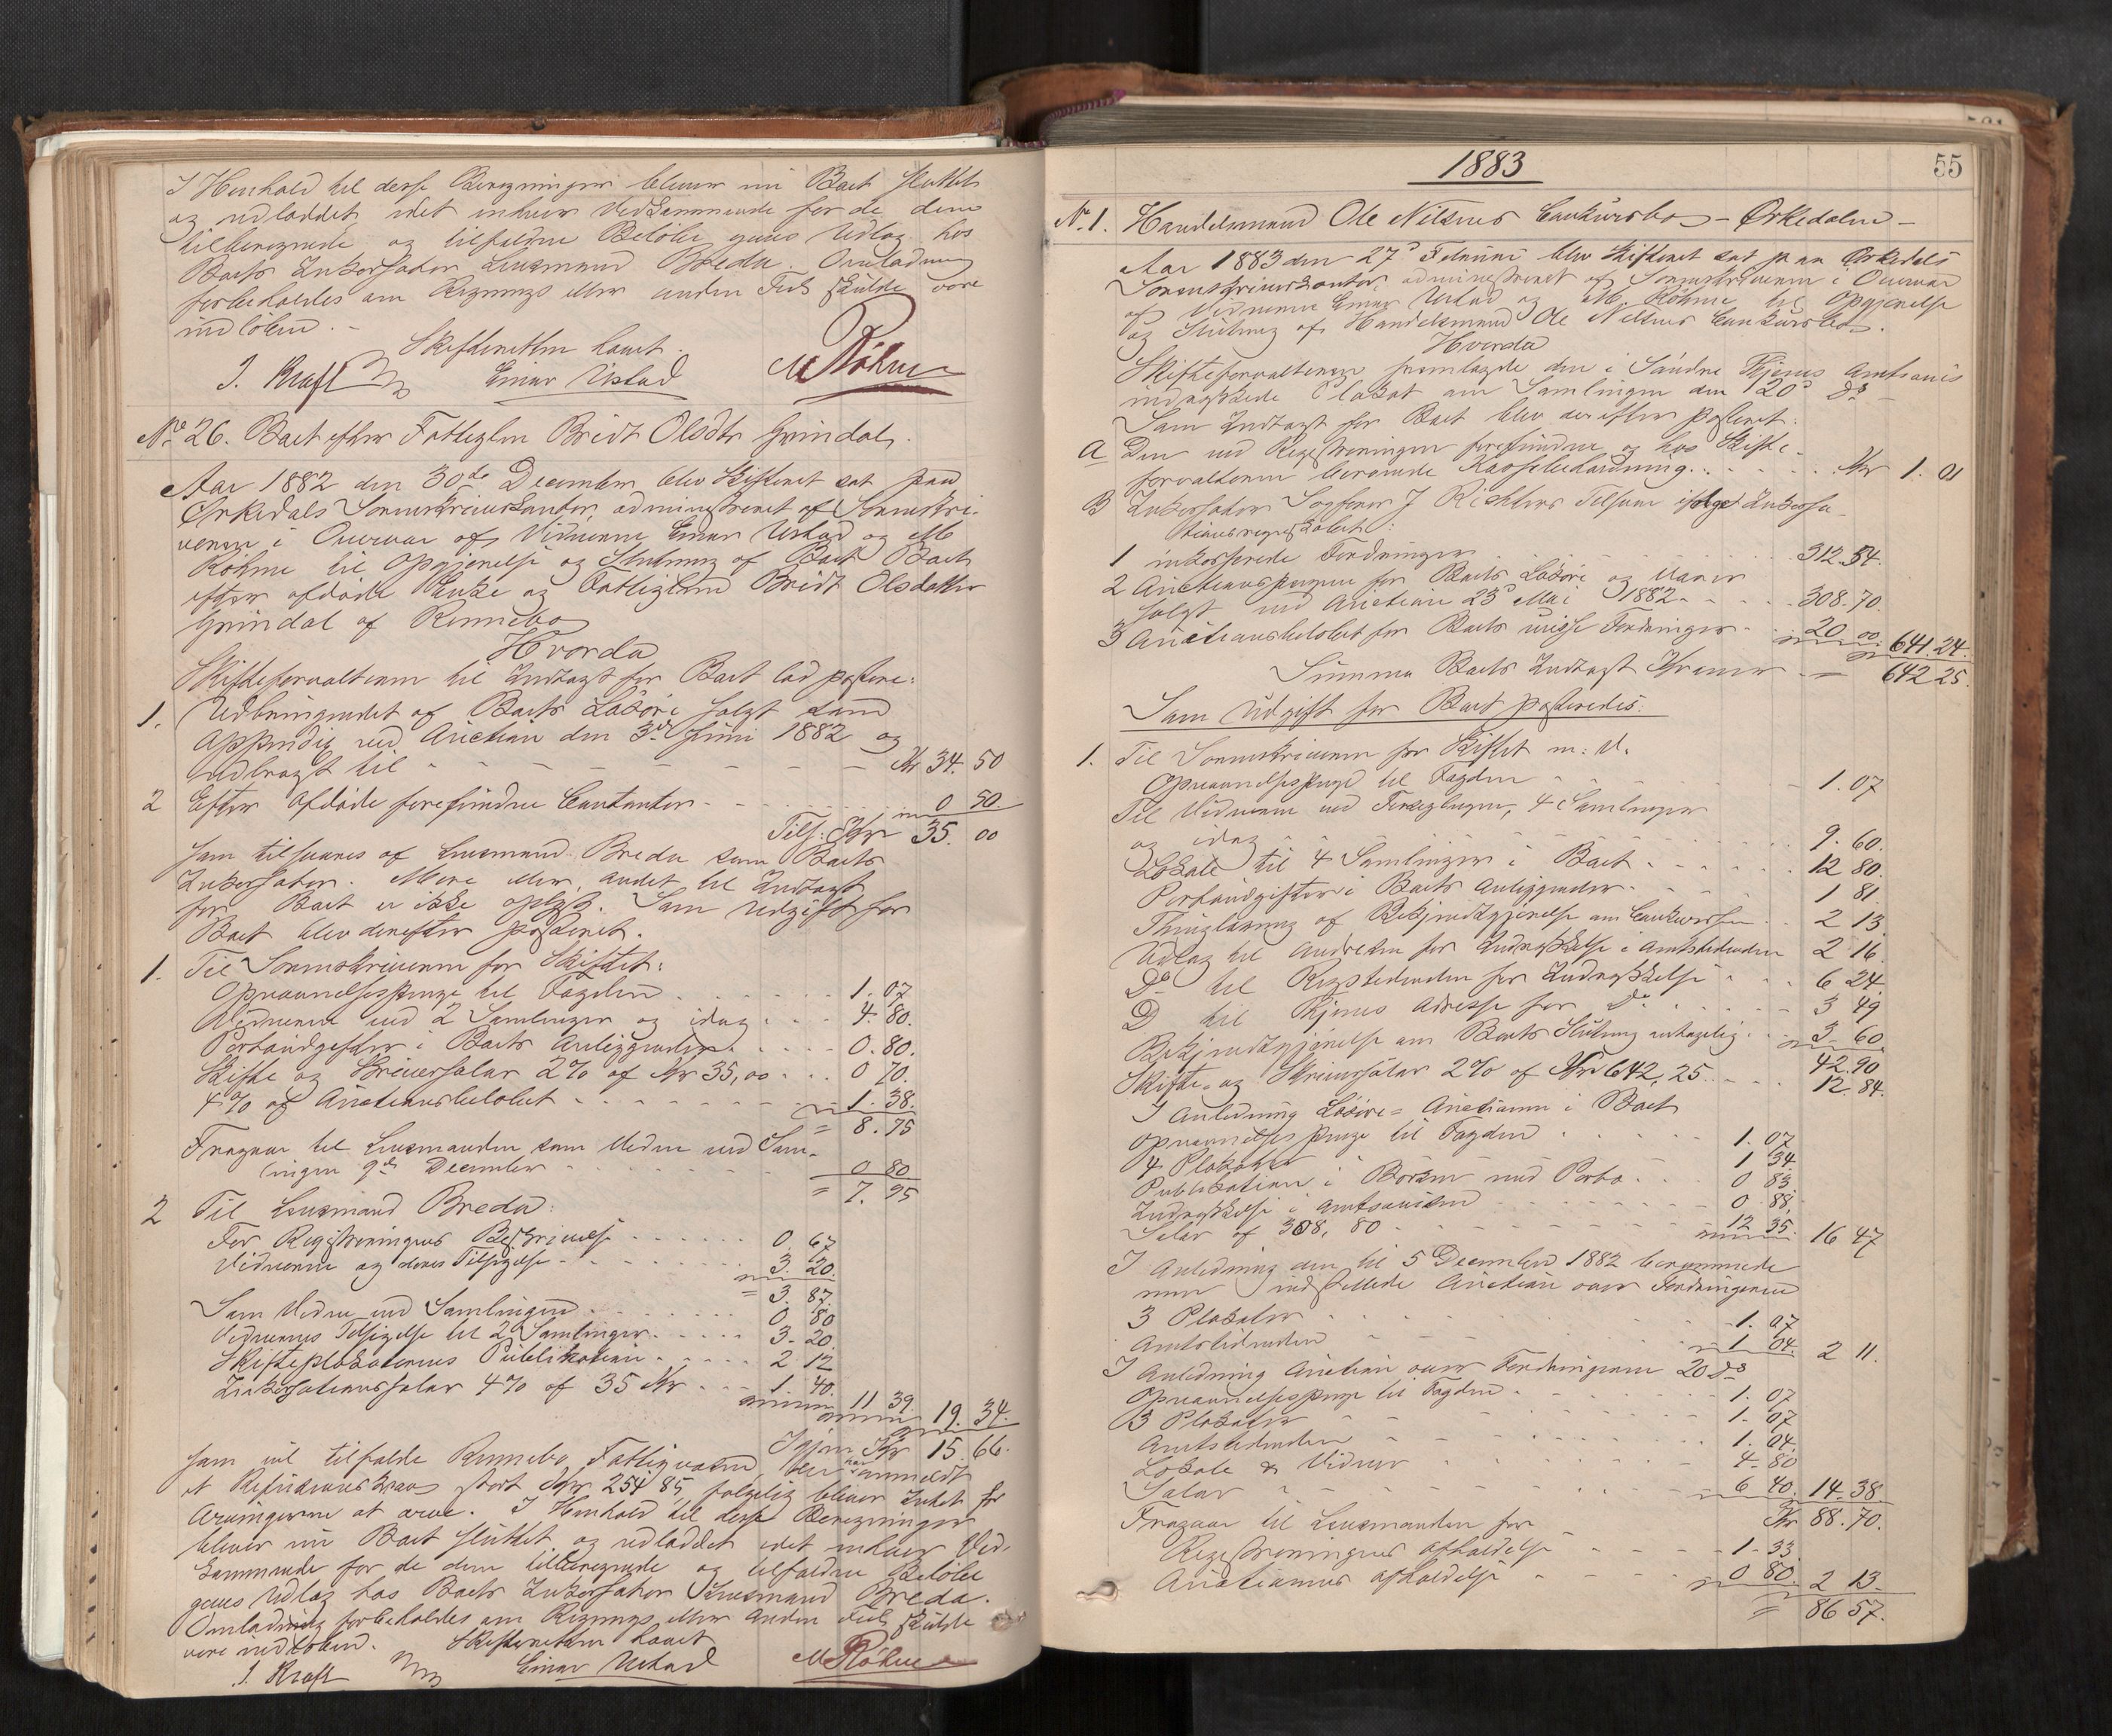 I Henhold til desse Beregninger bliver nu Boet sluttet
og udloddet, idet enhver Vedkommende for de dem
tilberegnede og tilfaldne Beløbe gives Udlæg hos
Boets Inkassator Lensmand Breda. Omlodning
forbeholdes om Regnings eller anden Feil skulde være
indløben. -
Skifteretten hævet.
J. Kraft Einar Ustad M Röhme
No 26. Boet efter Fattiglem Bridt Olsdtr Grindal.
Aar 1882 den 30de December blev Skifteret sat paa
Ørkedals Sorenskriverkontor, administreret af Sorenskri-
veren i Overvær af Vidnerne Einar Ustad og M
Röhme til Opgjørelse og Slutning af Boet Boet
efter afdøde Enke og Fattiglem Bridt Olsdatter
Grindal af Rennebo
Hvorda
Skifteforvalteren til Indtægt for Boet lod postere:
1. Udbringendet af Boets Løsøre solgt som
Appendix ved Auction den 3die Juni 1882 og
udbragt til - - - - - - Kr 34. 50
2 Efter Afdøde forefundne Contanter - - - 0 50.
Tils: Kr 35. 00
som tilsvares af Lensmand Breda som Boets
Inkassator. Mere eller andet til Indtægt
for Boet er ikke oplyst. Som Udgift for
Boet blev derefter posteret.
1. Til Sorenskriveren for Skiftet:
Opnævnelsespenge til Fogden . . . . . 1. 07
Vidnerne ved 2 Samlinger og idag . . . 4. 80.
Portoudgifter i Boets Anliggender . . . . 0. 80.
Skifte og Skriversalær 2% af Kr 35,00 . . . 0 70.
4% af Auctionsbeløbet - - - - - 1. 38.
= 8. 75
Fragaar til Lensmanden som Vidne ved Sam-
lingen 9de December - - - - 0 80
= 7. 95
2 Til Lensmand Breda:
For Registreringens Beskrivelse . . . . . . 0. 67
Vidnerne og deres Tilsigelse - - - - 3. 20.
= 3. 87.
Som Vidne ved Samlingen . . . . . . 0 80
Vidnernes Tilsigelse til 2 Samlinger . . . . . 3. 20.
Skifteplakaternes Publikation . . . . . 2 12
Inkassationssalær 4% af 35 Kr . . . 1 40.
11 39.
19. 34.
Igjen Kr 15. 66.
som vil tilfalde Rennebo Fattigvæsen, der har anmeldt
et Refusionskrav stort Kr 254 85, følgelig bliver Intet for
Arvingerne at arve. I Henhold til desse Beregninger
bliver nu Boet sluttet og udloddet idet enhver Ved-
kommende for de dem tilberegnede og tilfaldne Beløbe
gives Udlæg hos Boets Inkassator Lensmand Breda.
Omlodning forbeholdes om Regnings eller Anden Feil skulde
være indløben. Skifteretten hævet
J. Kraft Einar Ustad M Röhme
1883
55
No. 1. Handelsmand Ole Nilsens Conkursbo - Ørkedalen -
Aar 1883 den 27de Februar blev Skifteret sat paa Ørkedals
Sorenskriverkontor, administreret af Sorenskriveren i Overvær
af Vidnerne Einar Ustad og M. Röhme til Opgjørelse
og Slutning af Handelsmand Ole Nilsens Conkursbo.
Hvorda
Skifteforvalteren fremlagde den i Søndre Thjems Amtsavis
indrykkede Plakat om Samlingen den 20de ds -
Som Indtægt for Boet blev derefter posteret:
A Den ved Registreringen forefundne og hos Skifte-
forvalteren beroende Kassebeholdning . . . - - - Kr 1. 01
B Inkassator Sagfører J Richters Tilsvar ifølge Inkassa-
tionsregnskabet:
1 inkasserede Fordringer . . . . . . 312. 54.
2 Auctionspengene for Boets Løsøre og Varer
solgt ved Auction 23de Mai 1882 - - - - 308. 70.
3 Auctionsbeløbet for Boets uvisse Fordringer - - 20 00. 641. 24.
Summa Boets Indtægt Kroner - - 642 25.
Som Udgift for Boet posteredes:
1. Til Sorenskriveren for Skiftet m. v.
Opnævnelsespenge til Fogden - - - - - 1. 07
Til Vidnerne ved Forseglingen, 4 Samlinger
og idag - - - . . . . . . 9. 60.
Lokale til 4 Samlinger i Boet . . . . . . 12 80.
Portoudgifter i Boets Anliggender - - - - 1 81.
Thinglæsning af Bekjendtgjørelse om Conkursen . . 2 13.
Udlæg til Budstikken for Indrykkelse i Amtstidenden 2 16.
Do til Rigstidenden for Indrykkelse - - - 6 24.
Do til Thjems Adresse for Do . . - - - - 3 49
Bekjendtgjørelse om Boets Slutning . . . 3. 60.
42. 90
Skifte- og Skriversalær 2% af Kr 642, 25 . . - - 12. 84.
I Anledning Løsøre = Auctionen i Boet
Opnævnelses penge til Fogden . . . . . 1. 07
4 Plakater - - - - 1 34.
Publikation i Børsen med Porto . . . 0 83.
Indrykkelse i Amtsavisen - - - - 0. 88.
Salær af 308, 80 - - - - - 12 35. 16 47
I Anledning den til 5 December 1882 berammede
men indstillede Auction over Fordringerne
3 Plakater . . . . . . . . . 1. 07
Amtstidenden - - - - - 1 04. 2 11.
I Anledning Auction over Fordringerne 20 ds
Opnævnelsespenge til Fogden . - - - - 1. 07
3 Plakater - - - - - 1. 07
Amtstidenden - - - - - 1. 04.
Lokale & Vidner - - - - - 4- 80
Salær - - - - - 6 40. 14. 38
Kr 88. 70.
Fragaar til Lensmanden for
Registreringens Afholdelse - - - - 1- 33.
Auctionens Afholdelse - - - - 0 80. 2 13.
= 86 57.